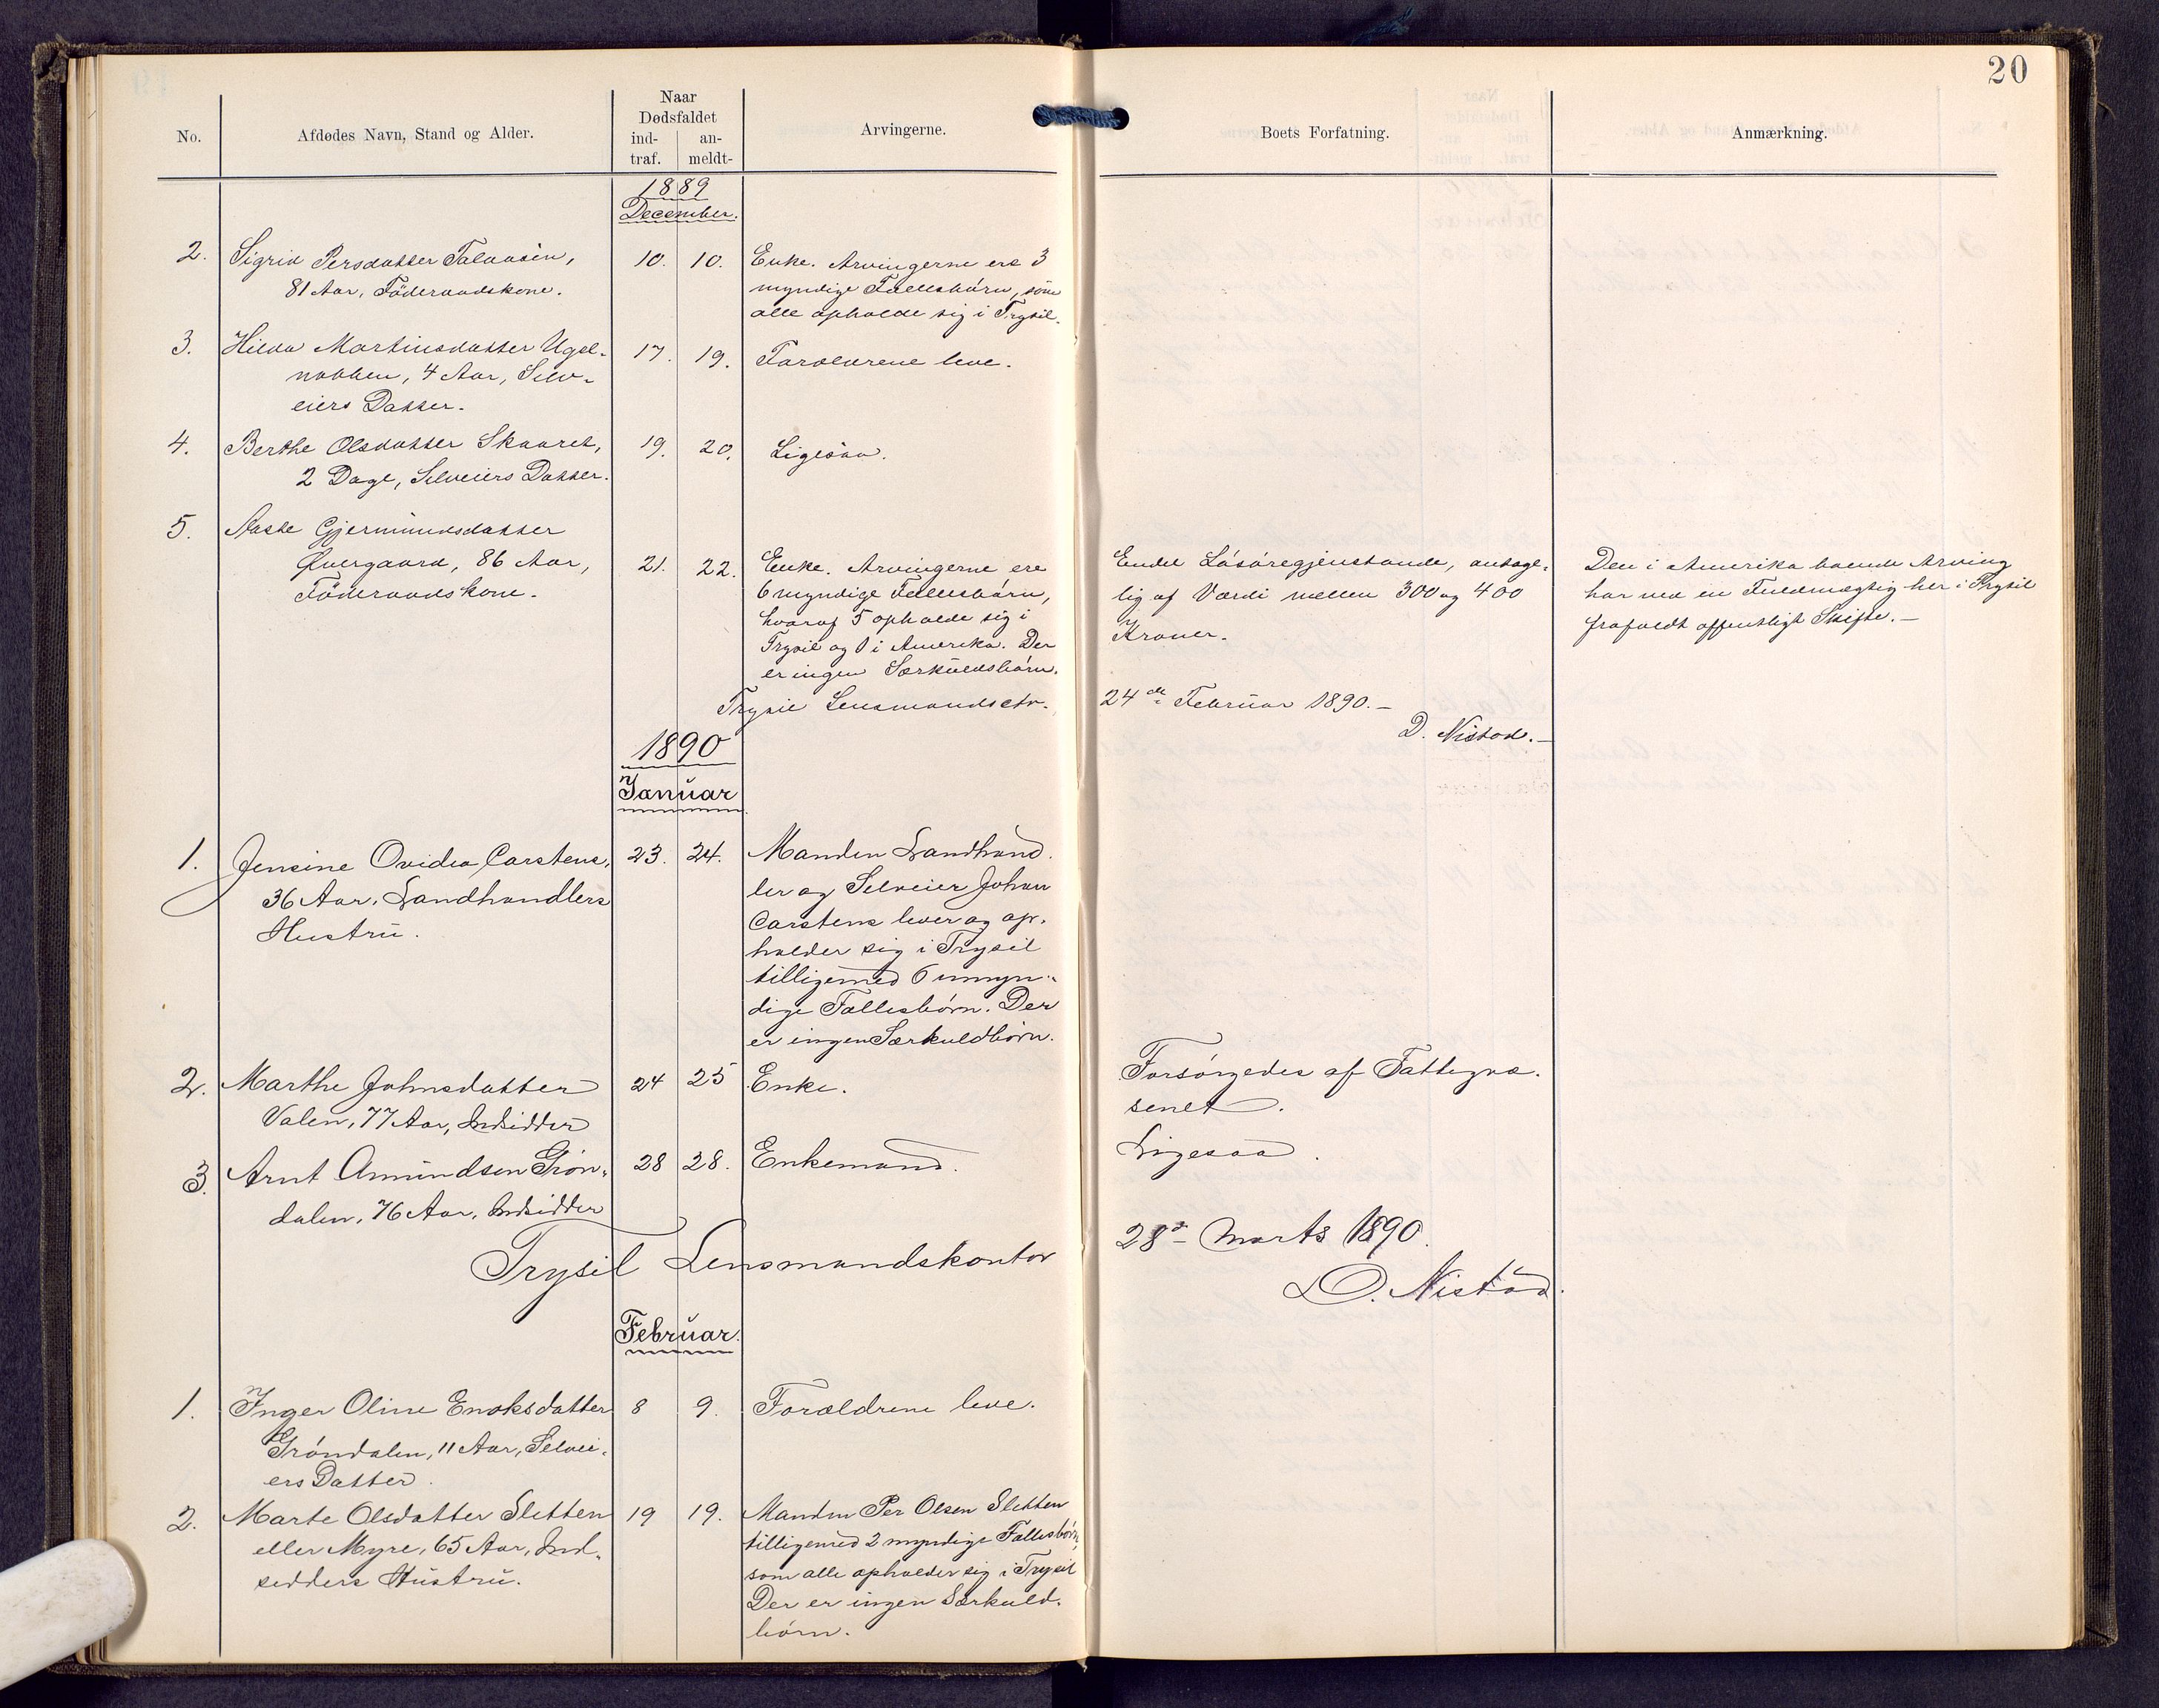 20
No.
Afdødes Navn, Stand og Alder.
Naar
Dødsfaldet
ind-
traf.
an-
meldt-
Arvingerne.
Boets Forfatning.
Anmærkning.
1889
December.
2.
Sigrid Persdatter
81 Aar, Föderaadskone.
10.
10.
Enke. Arvingerne ere 3
myndige Fællesbörn, som
alle opholde sig i Trysil.
3.
Hilda Martinsdatter Ugel-
nabben, 4 Aar, Selv-
eiers Datter.
17.
19.
Forældrene leve.
4.
Berthe Olsdatter Skaaret,
2 Dage, Selveiers Datter.
19.
20.
Ligesaa.
5.
Aaste Gjermundsdatter
Øvergaard, 86 Aar,
Föderaadskone.
21.
22.
Enke. Arvingerne ere
6 myndige Fællesbörn,
hvoraf 5 opholde sig i
Trysil og 1 i Amerika. Der
er ingen Særkuldsbörn.
Endel Lösöregjenstande, antage-
lig af Værdi mellem 300 og 400
Kroner.
Den i Amerika boende Arving
har ved en Fuldmægtig her i Trysil
forlangt offentligt Skifte.-
Trysil Lensmandsctr.
24de Februar 1890.-
D. Nistad.-
1890
Januar
1.
Jensine Ovidia Carstens,
36 Aar, Landhandlers
Hustru.
23.
24.
Manden Landhand-
ler og Selveier Johan
Carstens lever og op-
holder sig i Trysil
tilligemed 6 umyn-
dige Fællesbörn. Der
er ingen Særkuldbörn.
2.
Marthe Johnsdatter
Valen, 77 Aar, Indsidder
24
25
Enke.
Forsörgedes af Fattigvæ-
senet.
3.
Arnt Amundsen Grön-
dalen, 76 Aar, Indsidder
28
28.
Enkemand.
Ligesaa.
Trysil Lensmandskontor
28de Marts 1890.
D. Nistad.
Februar.
1.
Inger Oline Enoksdatter
Gröndalen, 11 Aar, Selvei-
ers Datter.
8
9.
Forældrene leve.
2.
Marte Olsdatter Sletten
eller Myre, 65 Aar, Ind-
sidders Hustru.
19
19.
Manden Per Olsen Sletten
tilligemed 2 myndige Fællesbörn,
som alle opholder sig i Trysil
Der er ingen Særkuld-
börn.